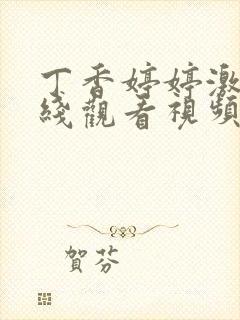 丁香婷婷激
綫觀看視頻
賀芬